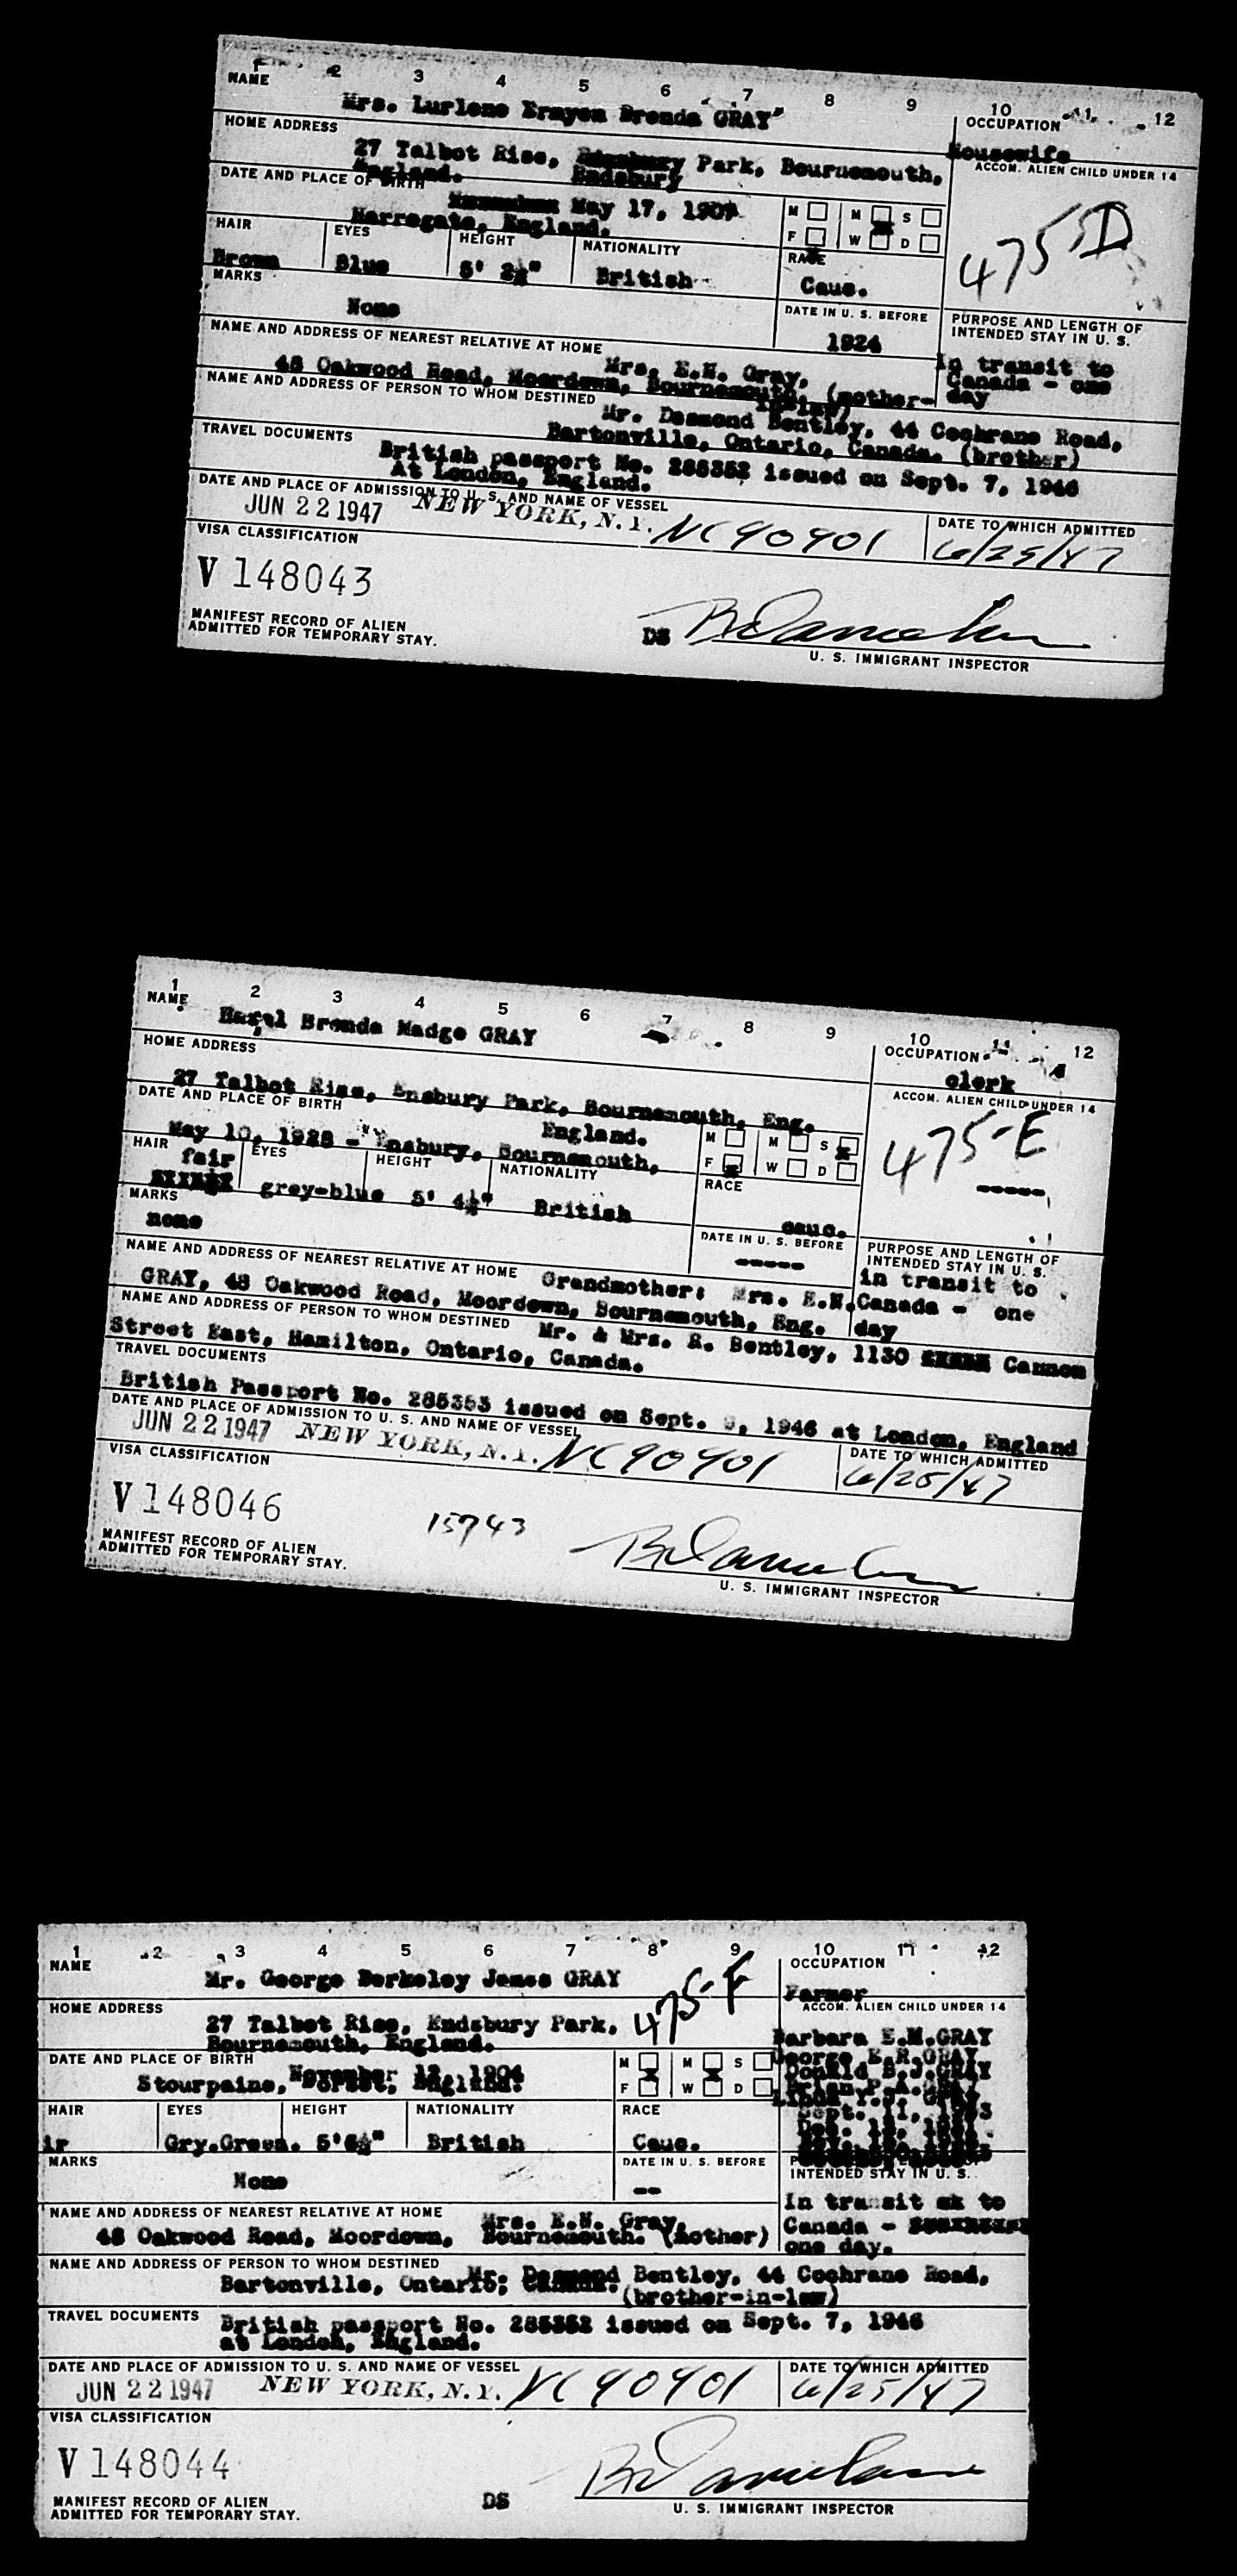 1 2 3 4 5 6 7 8 9 10 11 12
NAME
Mrs. Lurlene Brenda GRAY
OCCUPATION
Housewife
HOME ADDRESS
27 Talbot Rise, Park, Bournemouth,
England. Endsbury
ACCOM. ALIEN CHILD UNDER 14
475 D
DATE AND PLACE OF BIRTH
May 17,
Harrogate, England.
M M S
F W D
HAIR EYES HEIGHT NATIONALITY RACE
Brown Blue 5' 2½" British Cauc.
MARKS
None
DATE IN U. S. BEFORE
1924
PURPOSE AND LENGTH OF
INTENDED STAY IN U. S.
In transit to
Canada - one
day
NAME AND ADDRESS OF NEAREST RELATIVE AT HOME
Mrs. E.N. Gray,
48 Oakwood Road, Moordown, Bournemouth. (mother-
in-law)
NAME AND ADDRESS OF PERSON TO WHOM DESTINED
Mr. Desmond Bentley, 44 Cochrane Road,
Bartonville, Ontario, Canada. (brother)
TRAVEL DOCUMENTS
British passport No. 285352 issued on Sept. 7, 1946
At London, England.
DATE AND PLACE OF ADMISSION TO U. S. AND NAME OF VESSEL
JUN 22 1947 NEW YORK, N. Y. NC90901
DATE TO WHICH ADMITTED
6/25/47
VISA CLASSIFICATION
V 148043
MANIFEST RECORD OF ALIEN
ADMITTED FOR TEMPORARY STAY.
DS
U. S. IMMIGRANT INSPECTOR
1 2 3 4 5 6 7 8 9 10 11 12
NAME
Hazel Brenda Madge GRAY
OCCUPATION
clerk
HOME ADDRESS
27 Talbot Rise, Ensbury Park, Bournemouth, Eng.
ACCOM. ALIEN CHILD UNDER 14
475-E
-----
DATE AND PLACE OF BIRTH
England.
May 10, 1928 - Ensbury, Bournemouth,
M M S
F W D
HAIR EYES HEIGHT NATIONALITY RACE
fair
grey-blue 5' 4½" British cauc.
MARKS
none
DATE IN U. S. BEFORE
-----
PURPOSE AND LENGTH OF
INTENDED STAY IN U. S.
in transit to
Canada - one
day
NAME AND ADDRESS OF NEAREST RELATIVE AT HOME
Grandmother: Mrs. E.N.
GRAY, 48 Oakwood Road, Moordown, Bournemouth, Eng.
NAME AND ADDRESS OF PERSON TO WHOM DESTINED
Mr. & Mrs. R. Bentley, 1130 Cannon
Street East, Hamilton, Ontario, Canada.
TRAVEL DOCUMENTS
British Passport No. 285353 issued on Sept. 1946 at London, England
DATE AND PLACE OF ADMISSION TO U. S. AND NAME OF VESSEL
JUN 22 1947 NEW YORK, N. Y. NC90901
DATE TO WHICH ADMITTED
6/25/47
VISA CLASSIFICATION
V 148046
15743
MANIFEST RECORD OF ALIEN
ADMITTED FOR TEMPORARY STAY.
U. S. IMMIGRANT INSPECTOR
1 2 3 4 5 6 7 8 9 10 11 12
NAME
Mr. George Berkeley James GRAY
OCCUPATION
Farmer
HOME ADDRESS
27 Talbot Rise, Endsbury Park,
Bournemouth, England.
475-F
ACCOM. ALIEN CHILD UNDER 14
Barbara E.M.GRAY
George E.R.GRAY
Donald B.J.GRAY
DATE AND PLACE OF BIRTH
November 12, 1904
Stourpaine, Dorset, England.
M M S
F W D
HAIR EYES HEIGHT NATIONALITY RACE
Gry.Green. 5'6½" British Cauc.
MARKS
None
DATE IN U. S. BEFORE
--
INTENDED STAY IN U. S.
In transit to
Canada -
one day.
NAME AND ADDRESS OF NEAREST RELATIVE AT HOME
Mrs. E.N. Gray,
48 Oakwood Road, Moordown, Bournemouth. (mother)
NAME AND ADDRESS OF PERSON TO WHOM DESTINED
Mr. Desmond Bentley, 44 Cochrane Road,
Bartonville, Ontario, Canada.
(brother-in-law)
TRAVEL DOCUMENTS
British passport No. 285352 issued on Sept. 7, 1946
at London, England.
DATE AND PLACE OF ADMISSION TO U. S. AND NAME OF VESSEL
JUN 22 1947 NEW YORK, N. Y. NC90901
DATE TO WHICH ADMITTED
6/25/47
VISA CLASSIFICATION
V 148044
MANIFEST RECORD OF ALIEN
ADMITTED FOR TEMPORARY STAY.
DS
U. S. IMMIGRANT INSPECTOR